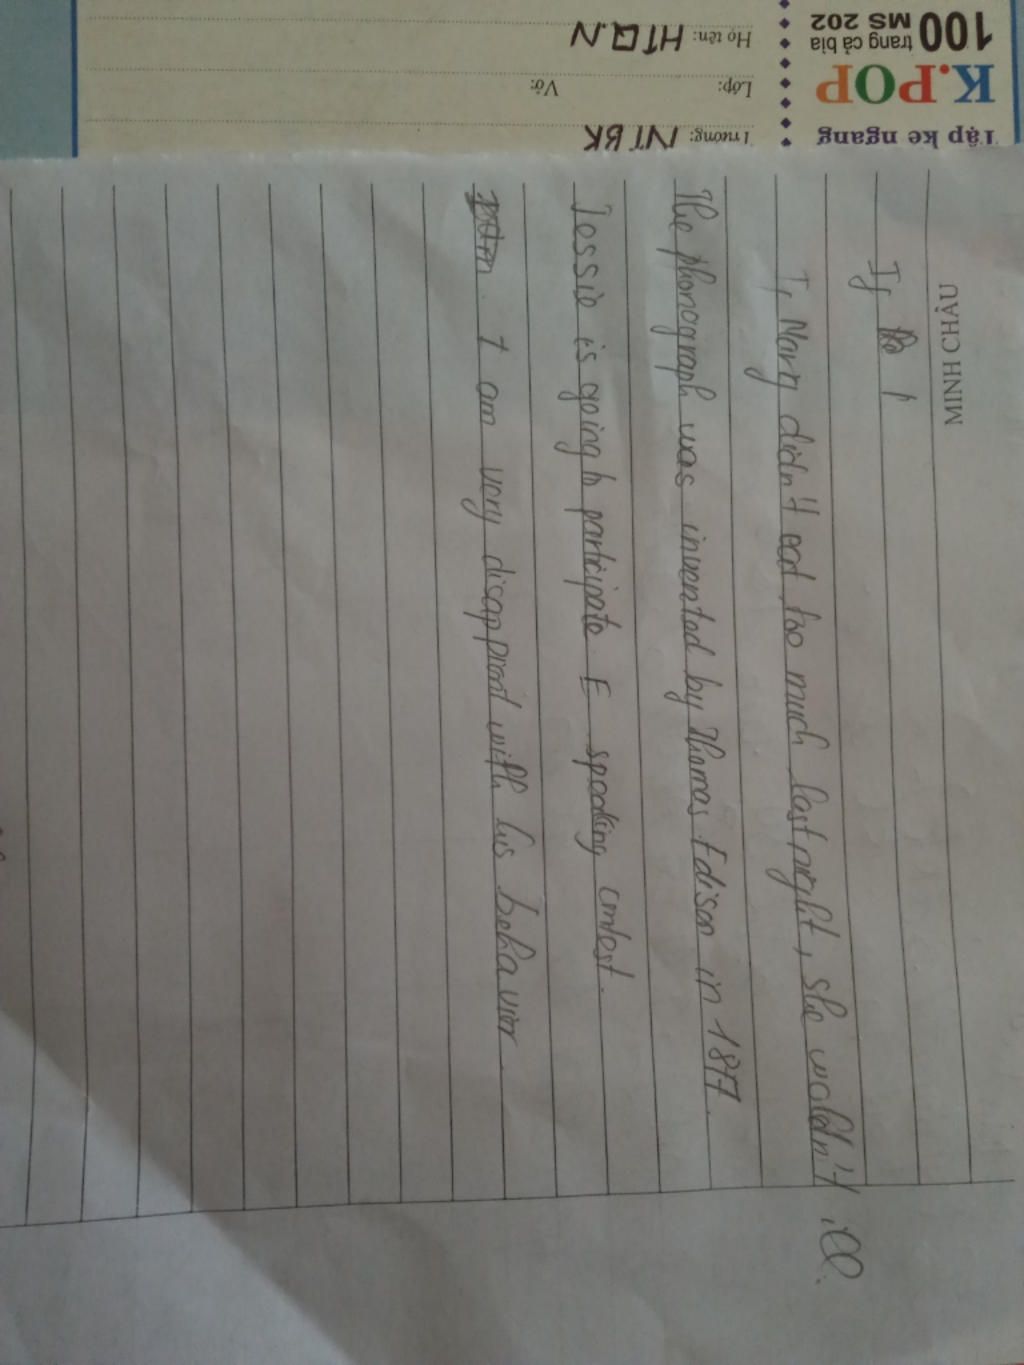 Tập kẻ ngang
K.POP
100 trang cả bìa
MS 202
Trường: NTBK
Lớp: Vở:
Họ tên: HTQ.N
MINH CHÂU
If
If Mary didn't eat too much last night, she woldn't ill.
The phonograph was invented by Thomas Edison in 1877.
Jessie is going to participate E speaking contest.
I am very disappioot with his behavior.